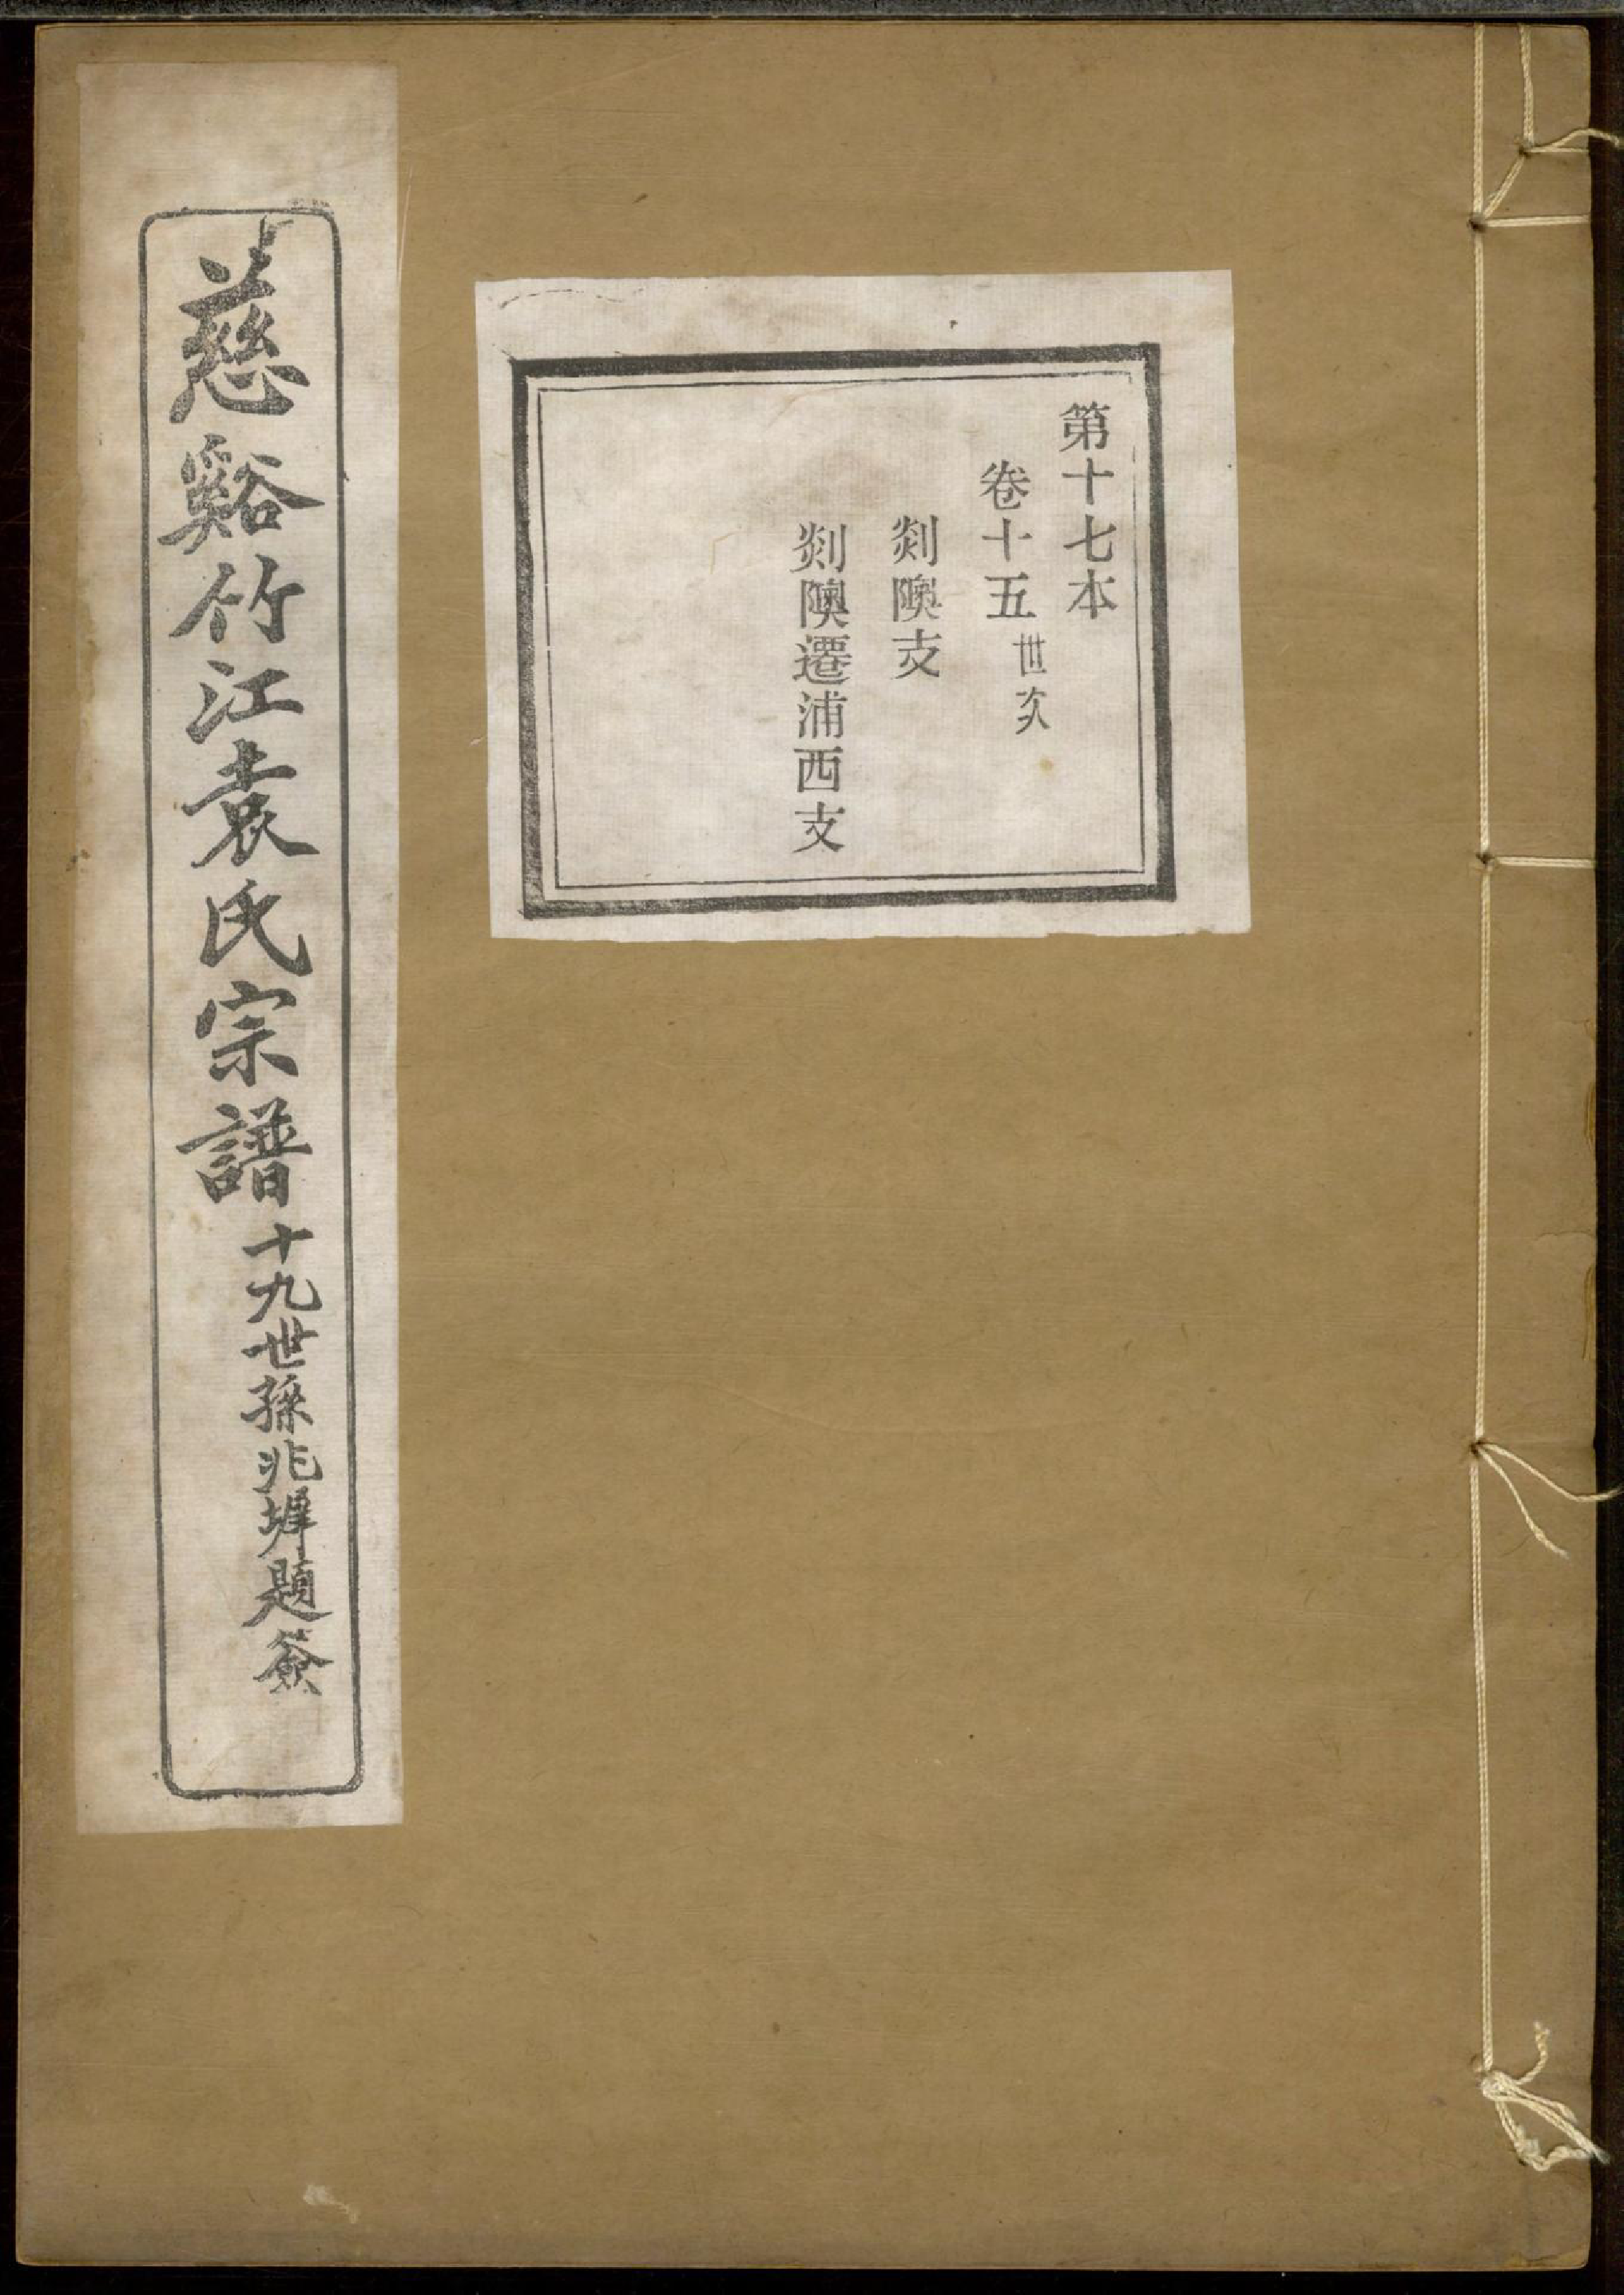 第十七本
卷十五世次
剡隩支
剡隩遷浦西支
慈谿竹江袁氏宗譜
十九世孫兆墀題簽